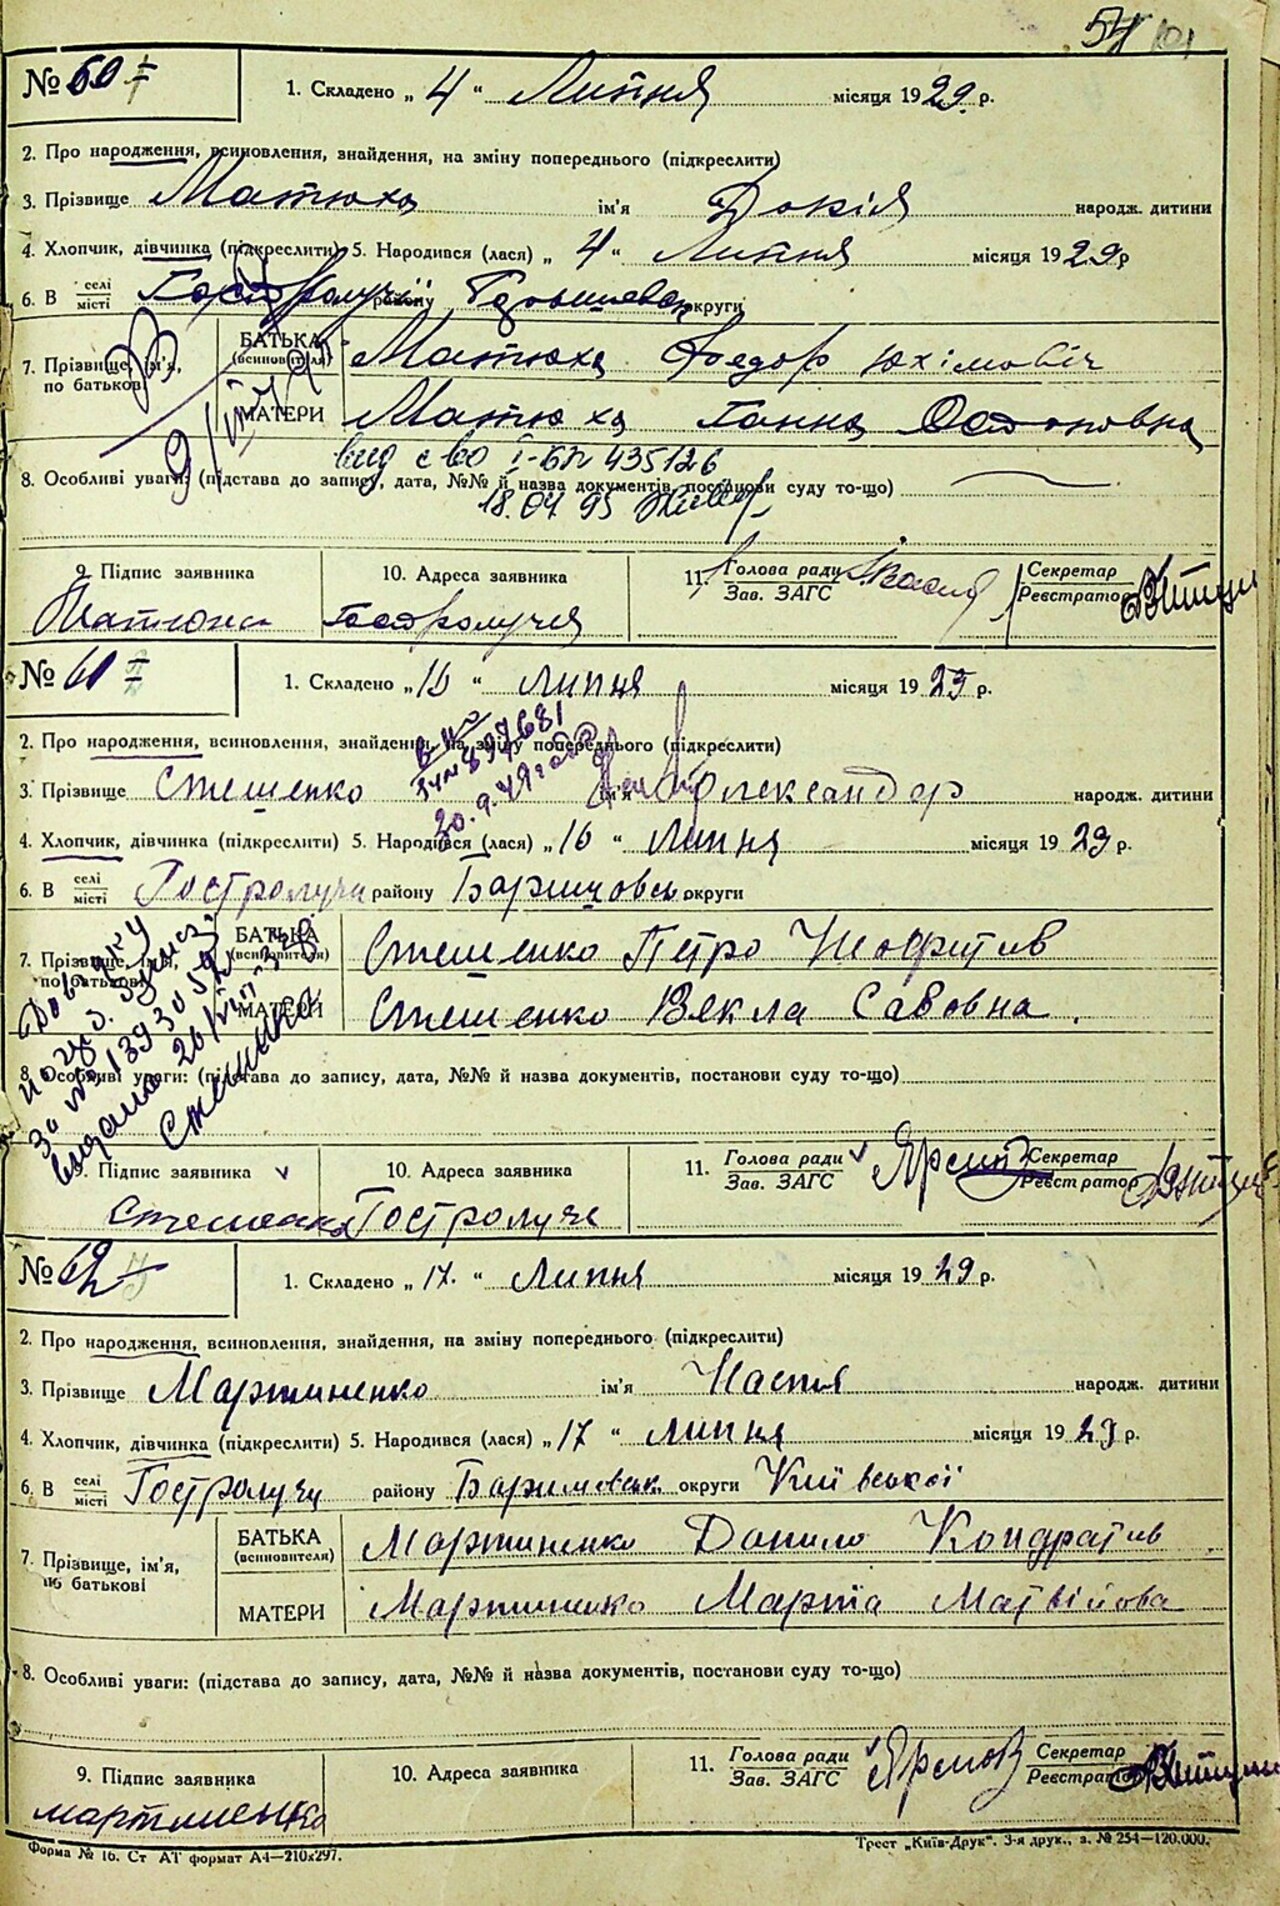 54
№ 60 I
1. Складено „ 4 “ Липня місяця 1929. р.
2. Про народження, всиновлення, знайдення, на зміну попереднього (підкреслити)
3. Прізвище Матюха ім'я Докія народж. дитини
4. Хлопчик, дівчинка (підкреслити) 5. Народився (лася) „ 4 “ Липня місяця 1929р
6. В селі місті району округи
7. Прізвище, ім'я, по батькові
БАТЬКА (всиновителя) Матюха Федор Юхімовіч
МАТЕРИ Матюха Ганна Остоповна
вид с во I-БП 435126
8. Особливі уваги: (підстава до запису, дата, №№ й назва документів, постанови суду то-що)
18.04 95
9. Підпис заявника 10. Адреса заявника 11. Голова ради Зав. ЗАГС Секретар Реєстратор
Матюха
№ 61 I
1. Складено „ 16 “ липня місяця 1929 р.
2. Про народження, всиновлення, знайдення, на зміну попереднього (підкреслити)
3. Прізвище Стешенко ім'я Олександер народж. дитини
20.9.49
4. Хлопчик, дівчинка (підкреслити) 5. Народився (лася) „ 16 “ липня місяця 1929 р.
6. В селі місті Гостролучи району Баришовськ округи
7. Прізвище, ім'я, по батькові
БАТЬКА (всиновителя) Стешенко Петро Неофитів
МАТЕРИ Стешенко Векла Савовна.
8. Особливі уваги: (підстава до запису, дата, №№ й назва документів, постанови суду то-що)
9. Підпис заявника 10. Адреса заявника 11. Голова ради Зав. ЗАГС Секретар Реєстратор
Стешенко Гостролуче
№ 62 I
1. Складено „ 17. “ Липня місяця 1929 р.
2. Про народження, всиновлення, знайдення, на зміну попереднього (підкреслити)
3. Прізвище Мартиненко ім'я Настя народж. дитини
4. Хлопчик, дівчинка (підкреслити) 5. Народився (лася) „ 17 “ липня місяця 1929 р.
6. В селі місті Гостролучи району Баришовськ округи Київської
7. Прізвище, ім'я, по батькові
БАТЬКА (всиновителя) Мартиненко Данило Кондратів
МАТЕРИ Мартиненко Марія Матвійова
8. Особливі уваги: (підстава до запису, дата, №№ й назва документів, постанови суду то-що)
9. Підпис заявника 10. Адреса заявника 11. Голова ради Зав. ЗАГС Секретар Реєстратор
Форма № 16. Ст АТ формат А4—210х297. Трест „Київ-Друк“. 3-я друк., з. № 254—120.000.